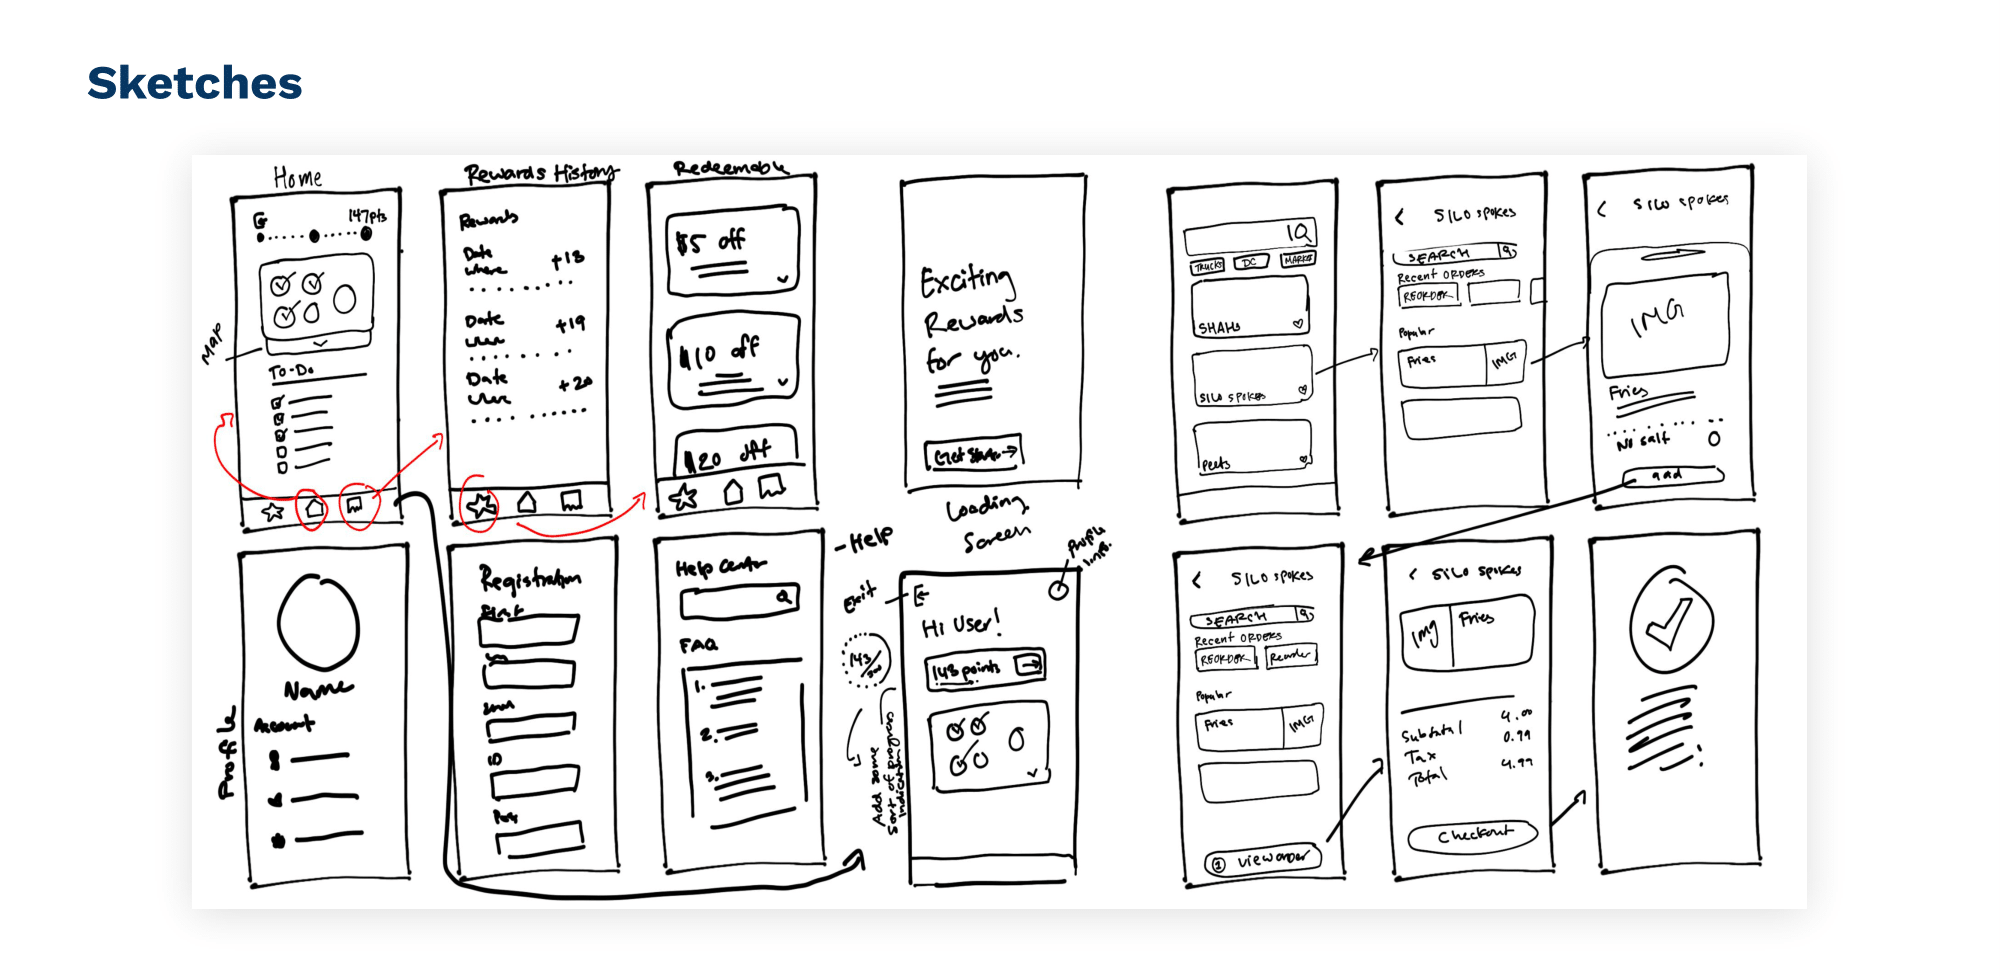 Sketches
Home
147pts
To-Do
Map
Rewards History
Rewards
Date
where +18
Date +19
Date +20
Redeemable
$5 off
$10 off
$20 off
Exciting
Rewards
for you.
Loading
Screen
TRUCKS DC MARKET
SHAHs
SILO SPOKES
Peets
< SILO SPOKES
SEARCH
Recent ORDERS
REORDER
Popular
Fries IMG
< SILO SPOKES
IMG
Fries
No salt
add
Profile
Name
Account
Registration
First
ID
Help Center
FAQ
1.
2.
3.
-Help
Exit
Profile
Hi User!
143 points
143/
Add some
sort of progress
indication
< SILO SPOKES
SEARCH
Recent ORDERS
REORDER Reorder
Popular
Fries IMG
view order
< SILO SPOKES
Img Fries
Subtotal 4.00
Tax 0.99
Total 4.99
Checkout